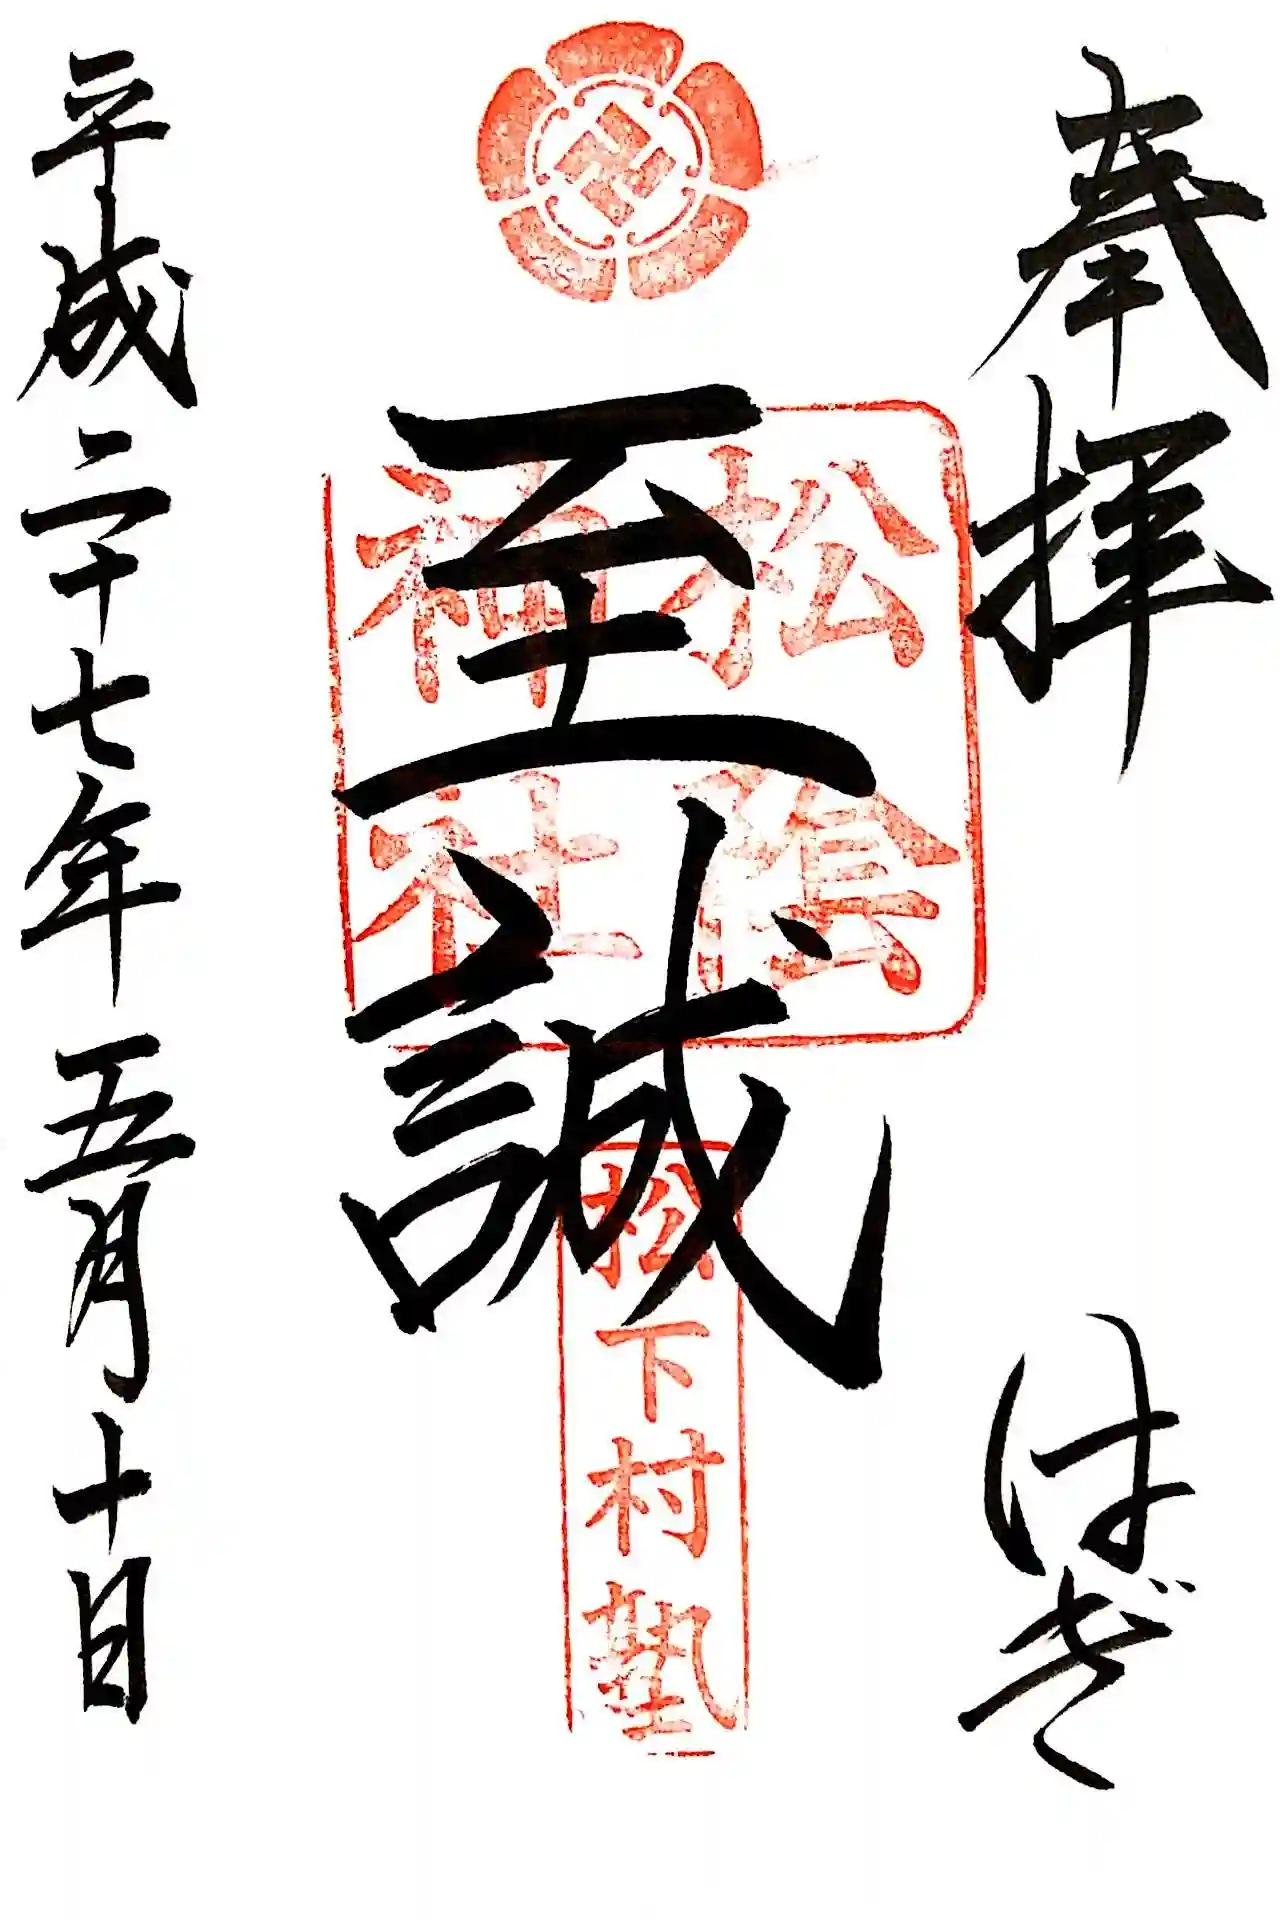 奉拝 はぎ
松陰
神社
至誠
松下村塾
平成二十七年 五月十日